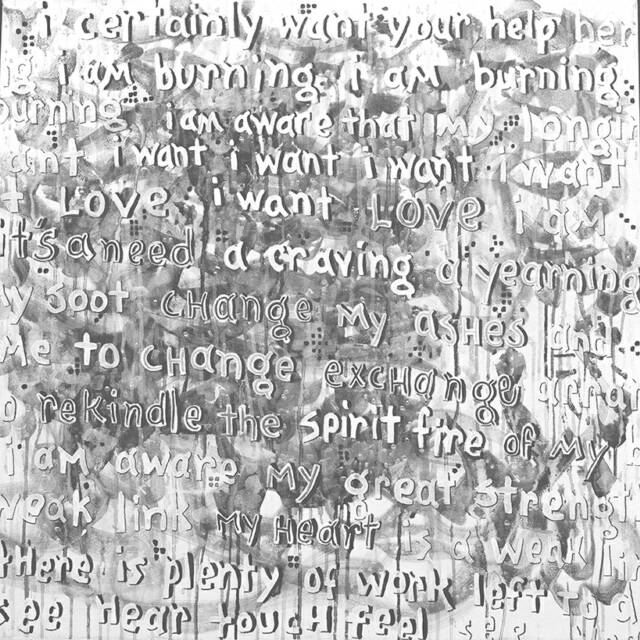 i certainly want your help her
i am burning. i am burning.
burning i am aware that my longi
ant i want i want i want i want
t LOVE i want LOVE i am
it's a need a craving a yearning
y soot change my ashes and
me to change exchange
o rekindle the spirit fire of my
i am aware my great strengt
weak link my heart is a weak lin
there is plenty of work left to g
see hear touch feel see